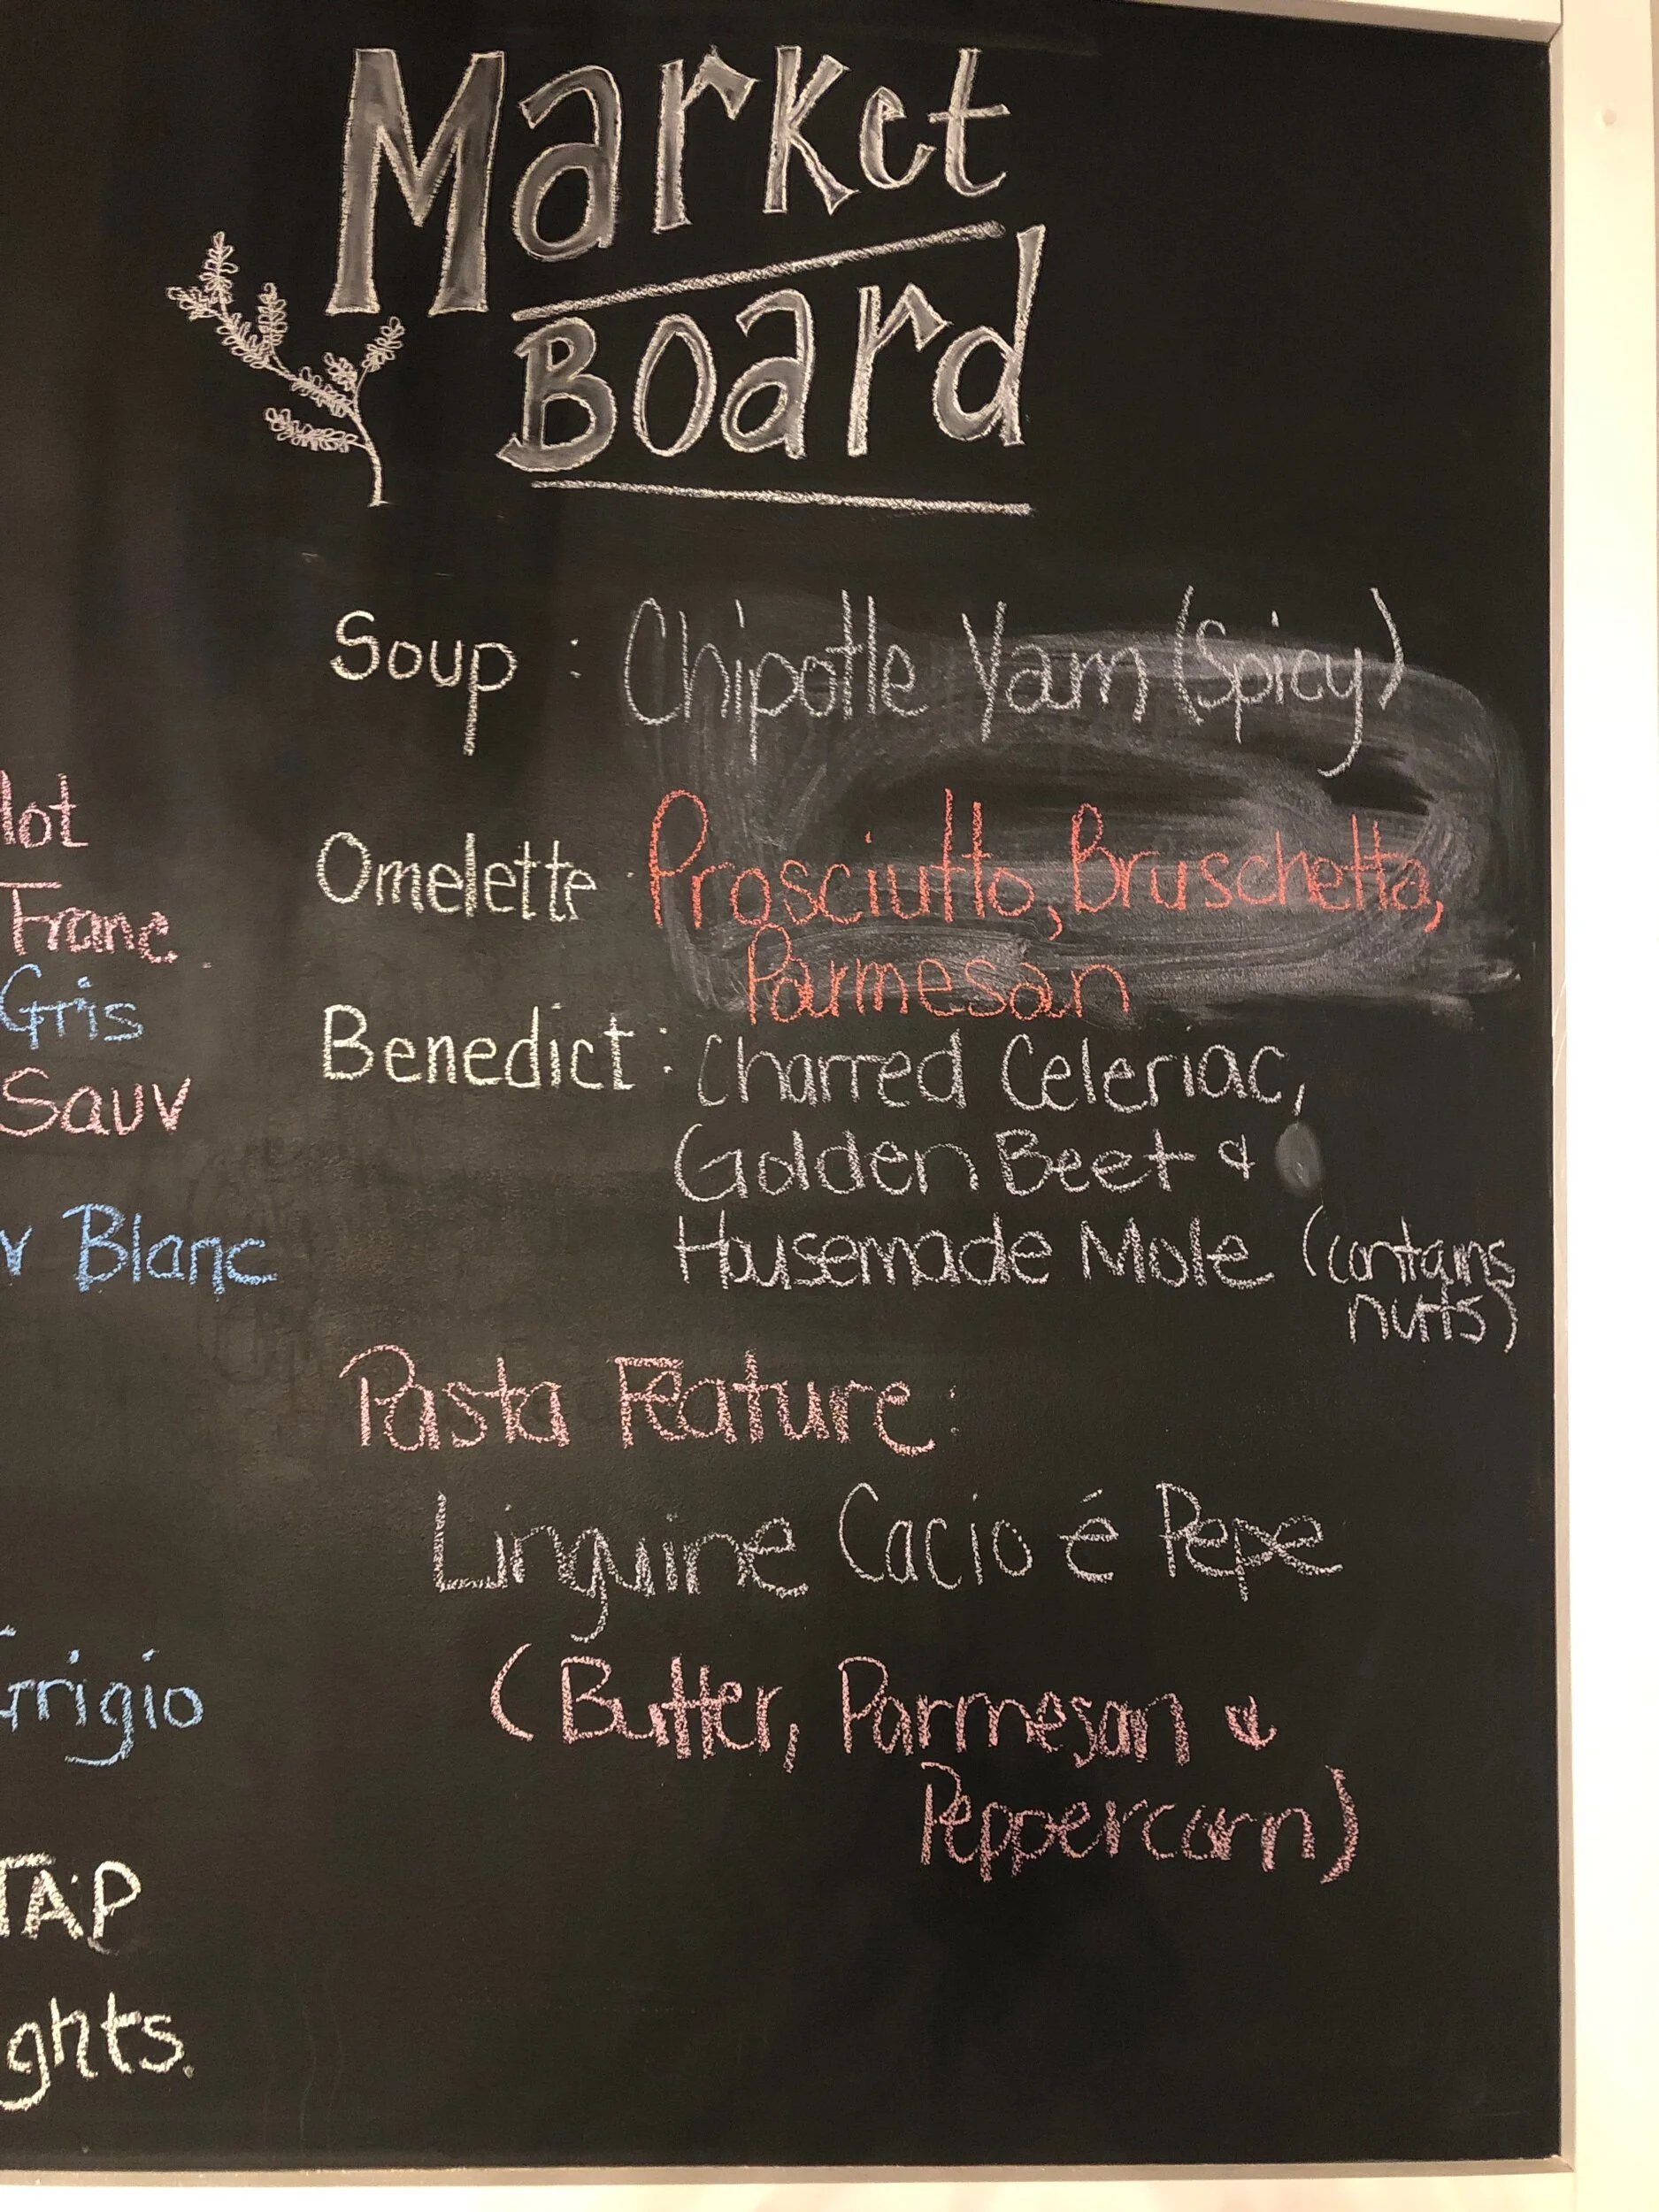 Market
Board
Soup : Chipotle Yam (Spicy)
Omelette : Prosciutto, Bruschetta,
Parmesan
Benedict : Charred Celeriac,
Golden Beet &
Housemade Mole (contains
nuts)
Pasta Feature :
Linguine Cacio é Pepe
(Butter, Parmesan &
Peppercorn)
lot
Franc
Gris
Sauv
v Blanc
Grigio
TAP
ghts.